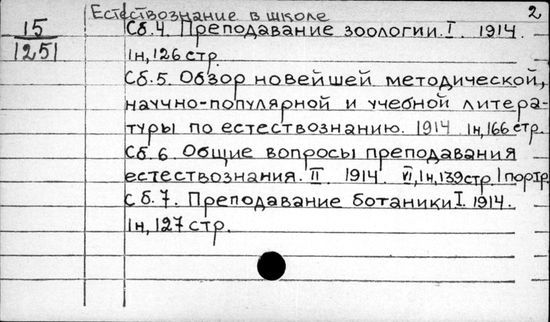 Естествознание в школе
2
15
1251
Сб.4. Преподавание зоологии. I. 1914.
1н, 126 стр.
Сб.5. Обзор новейшей методической,
научно-популярной и учебной литера-
туры по естествознанию. 1914 1н, 166 стр.
Сб.6. Общие вопросы преподавания
естествознания. II. 1914. VI, 1н, 139 стр. 1 портр.
Сб.7. Преподавание ботаники I. 1914.
1н, 127 стр.